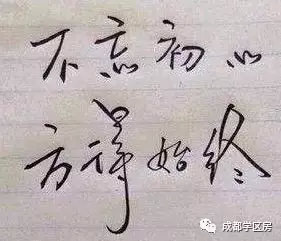 不忘初心
方得始终
成都学区房